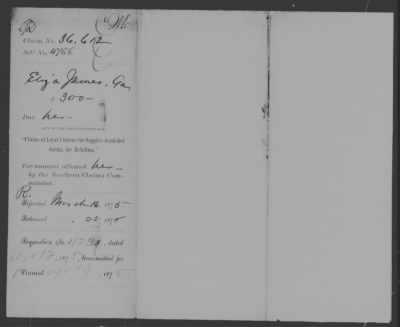 Claim No. 36,612
Sett No. 4755
Eliza James, Ga
$300
Due her
"Claims of Loyal Citizens for Supplies furnished
during the Rebellion."
For amount allowed her
by the Southern Claims Com-
mission.
R.
Reported March 16, 1875
Returned " 22, 1875
Requisition No. dated
1875, transmitted for
1875